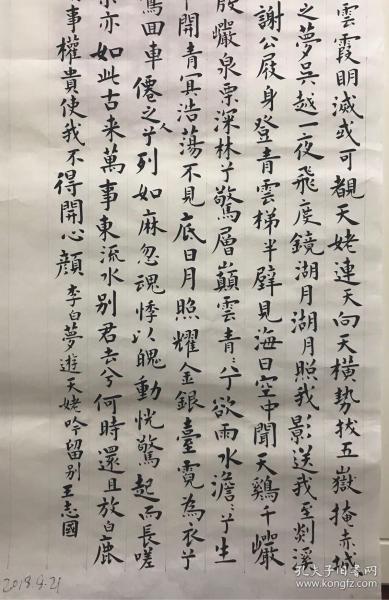 雲霞明滅或可覩天姥連天向天橫勢拔五嶽掩赤城
之夢吳越一夜飛度鏡湖月湖月照我影送我至剡溪
謝公屐身登青雲梯半壁見海日空中聞天鷄千巖
殷巖泉栗深林兮驚層巔雲青：兮欲雨水澹：兮生
開青冥浩蕩不見底日月照耀金銀臺霓為衣兮
鸞回車僊之人兮列如麻忽魂悸以魄動恍驚起而長嗟
亦如此古来萬事東流水別君去兮何時還且放白鹿
事權貴使我不得開心顏 李白夢遊天姥吟留別 王志國
2018.9.21
孔夫子旧书网